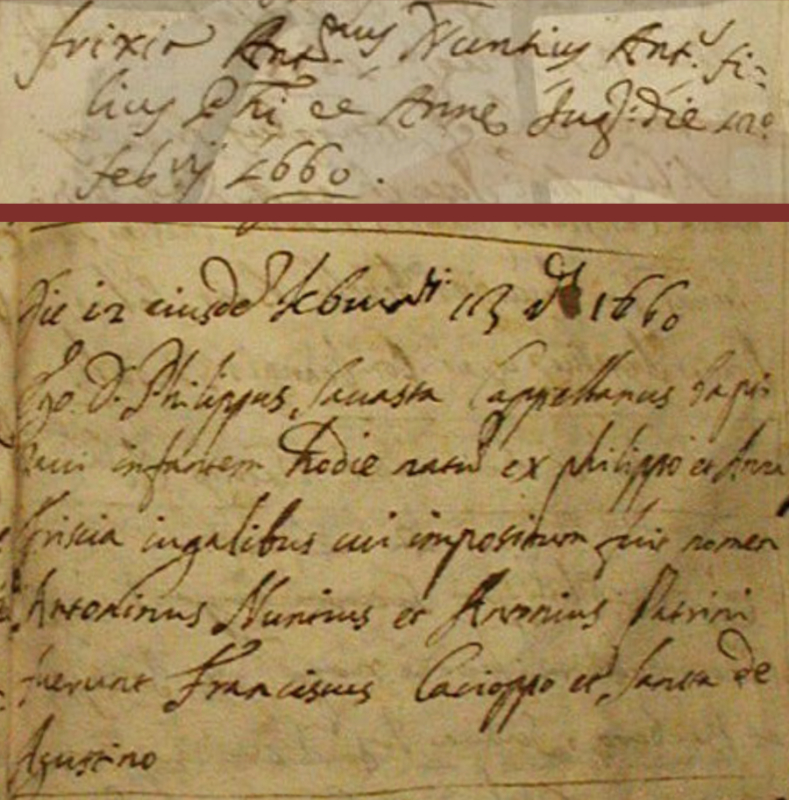 frixia Ant.nus Nuntius Ant.s fi=
lius Phi et Anne Jug: die 12°
feb.rij 1660.
Die 12 eiusdē februarii 13 Ind 1660
Ego D. Philippus Sauasta Cappellanus bapti
zaui infantem hodie natū ex philippo et Anna
friscia iugalibus cui impositum fuit nomen
Antoninus Nunius et Antonius Patrini
fuerunt Franciscus Cacioppo et Santa de
Agustino